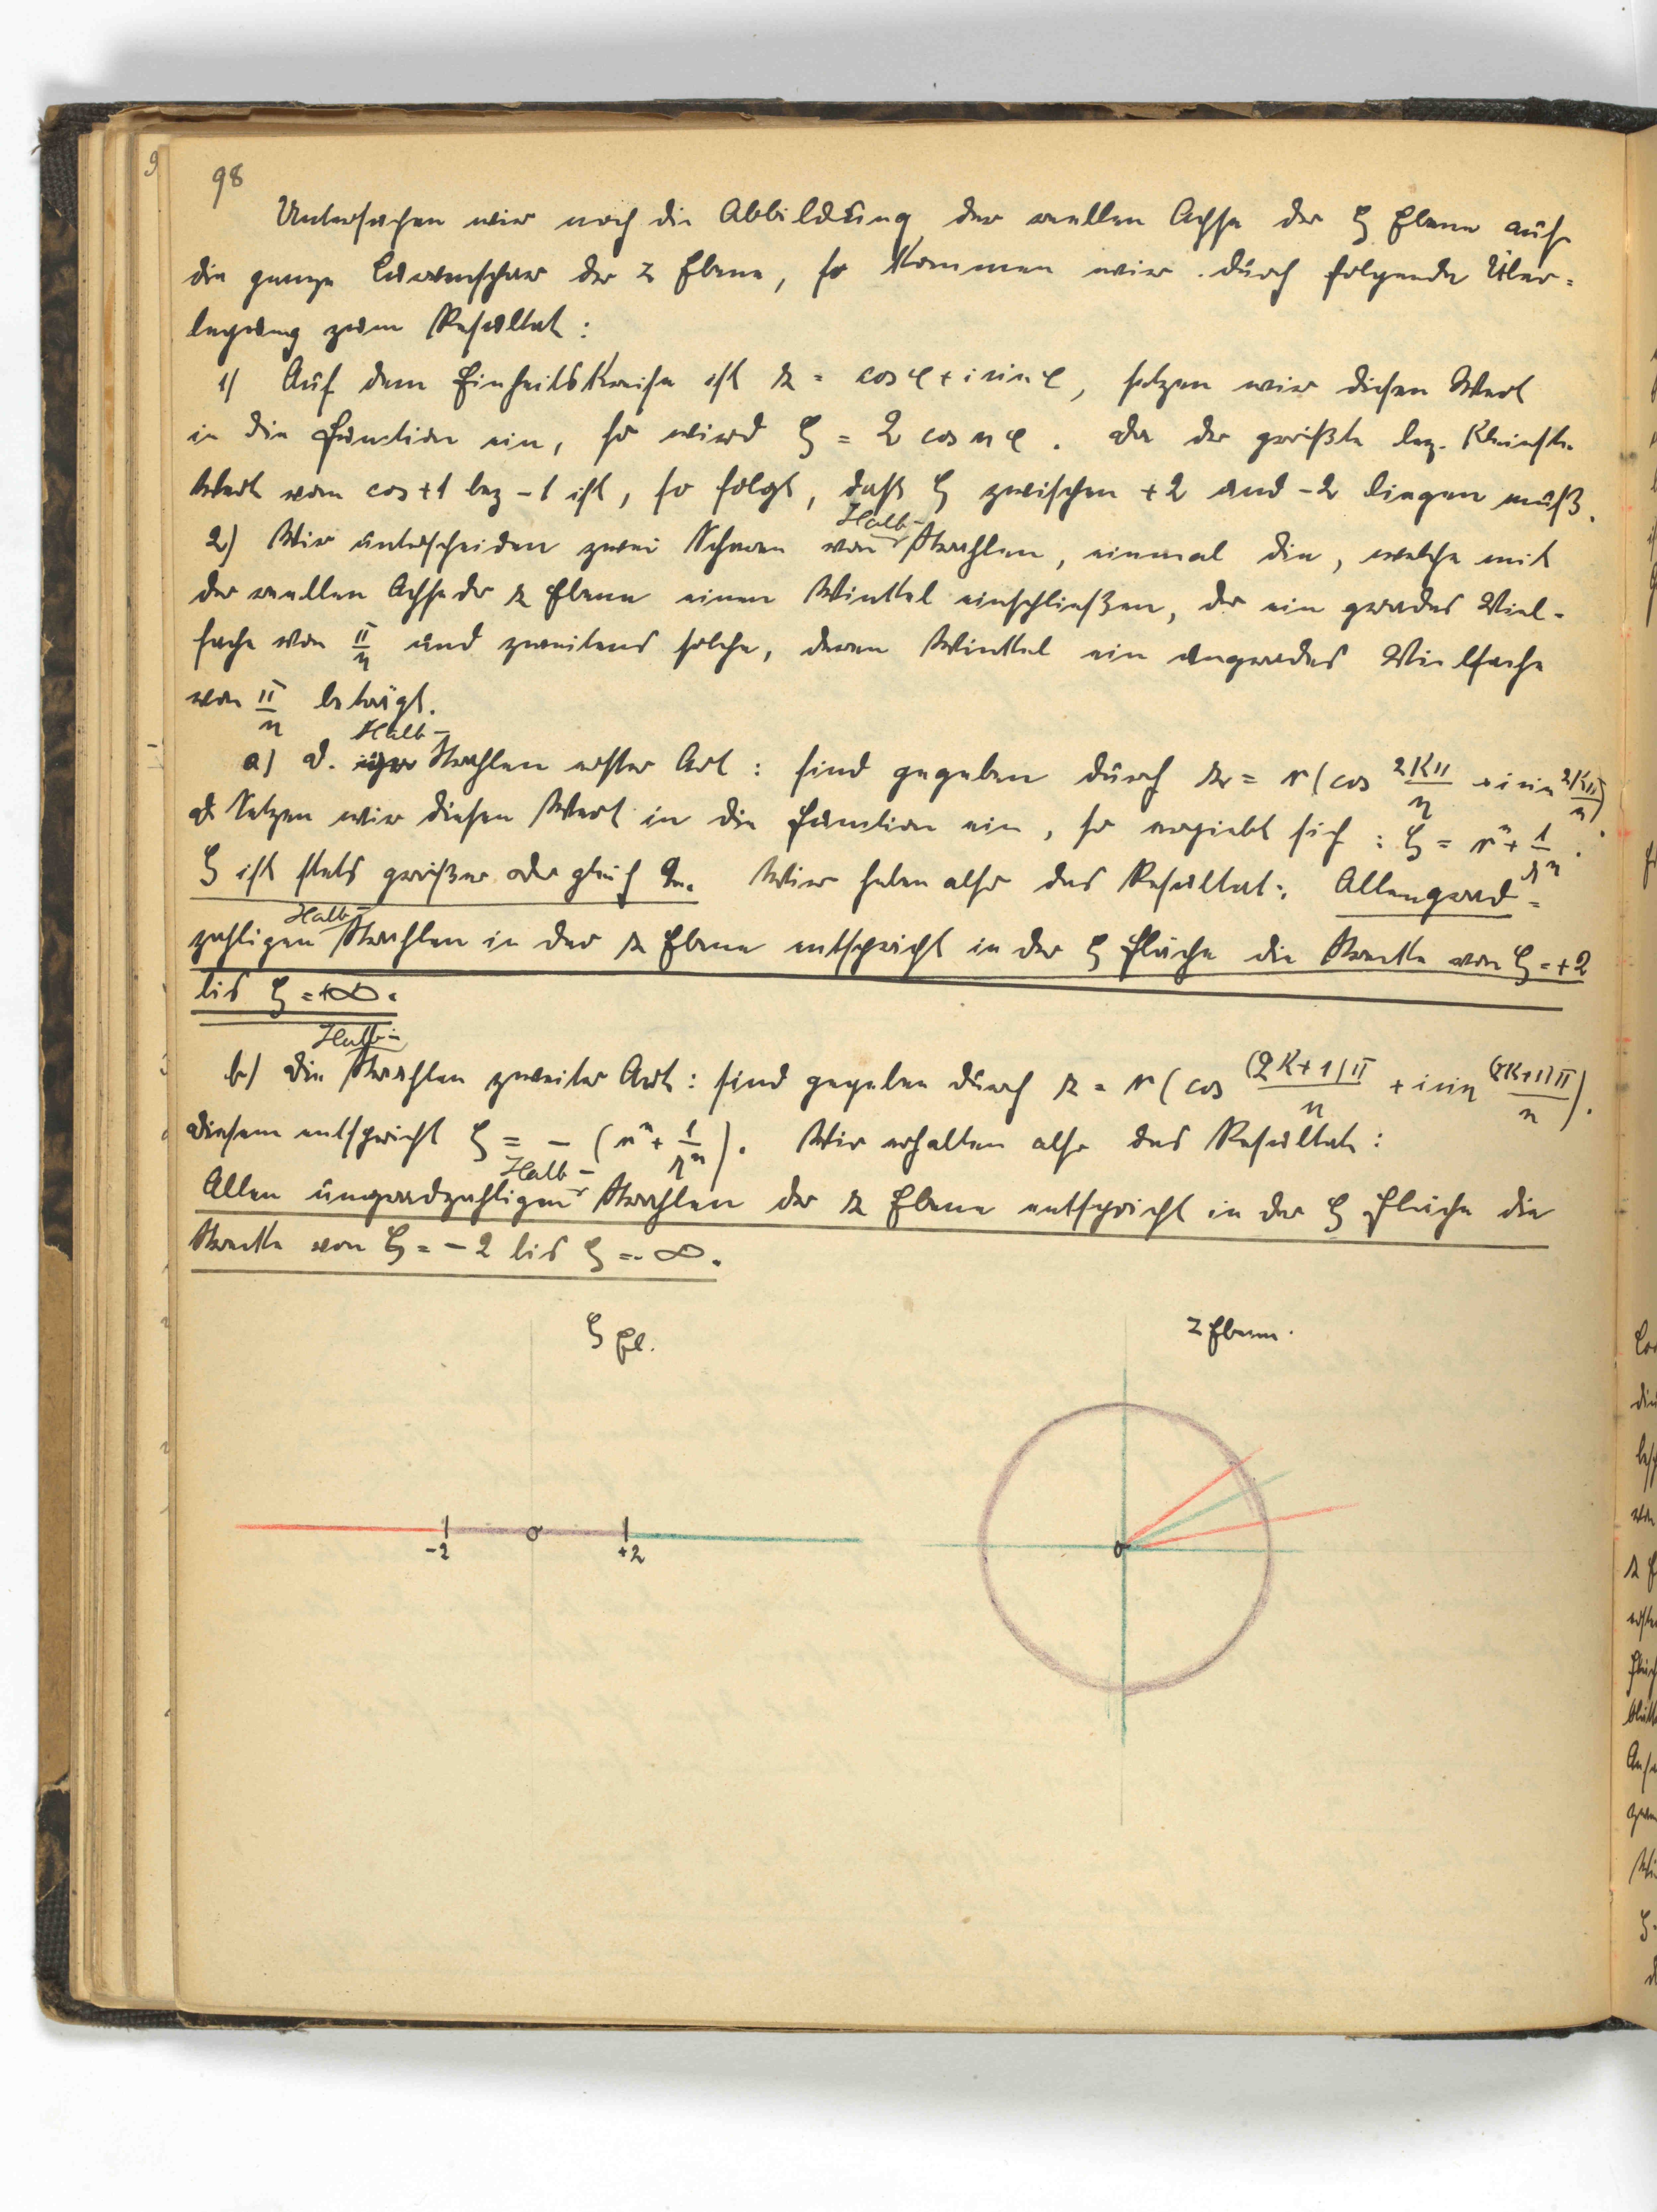 98
Untersuchen wir noch die Abbildung der reellen Achse der ζ Ebene auf
die ganze Curvenschar der z Ebene, so kommen wir durch folgende Über-
legung zum Resultat:
1) Auf dem Einheitskreise ist z = cos φ + i sin φ, setzen wir diesen Wert
in die Function ein, so wird ζ = 2 cos nφ. Da der größte bez. kleinste
Wert vom cos +1 bez -1 ist, so folgt, daß ζ zwischen +2 und -2 liegen muß.
2) Wir unterscheiden zwei Scharen von Halb-Strahlen, einmal die, welche mit
der reellen Achse der z Ebene einen Winkel einschließen, der ein grades Viel-
fache von π/n und zweitens solche, deren Winkel ein ungrades Vielfache
von π/n beträgt.
a) D. Halb-Strahlen erster Art: sind gegeben durch z = r (cos 2kπ/n + i sin 2kπ/n).
Setzen wir diesen Wert in die Function ein, so ergiebt sich: ζ = rⁿ + 1/rⁿ.
ζ ist stets größer oder gleich 2. Wir haben also das Resultat: Allen grad-
zahligen Halb-Strahlen in der z Ebene entspricht in der ζ Fläche die Strecke von ζ = +2
bis ζ = +∞.
b) Die Halb-Strahlen zweiter Art: sind gegeben durch z = r (cos (2k+1)π/n + i sin (2k+1)π/n).
Diesem entspricht ζ = - (rⁿ + 1/rⁿ). Wir erhalten also das Resultat:
Allen ungradzahligen Halb-Strahlen der z Ebene entspricht in der ζ Fläche die
Strecke von ζ = -2 bis ζ = -∞.
ζ Fl. z Ebene.
-2 0 +2 0